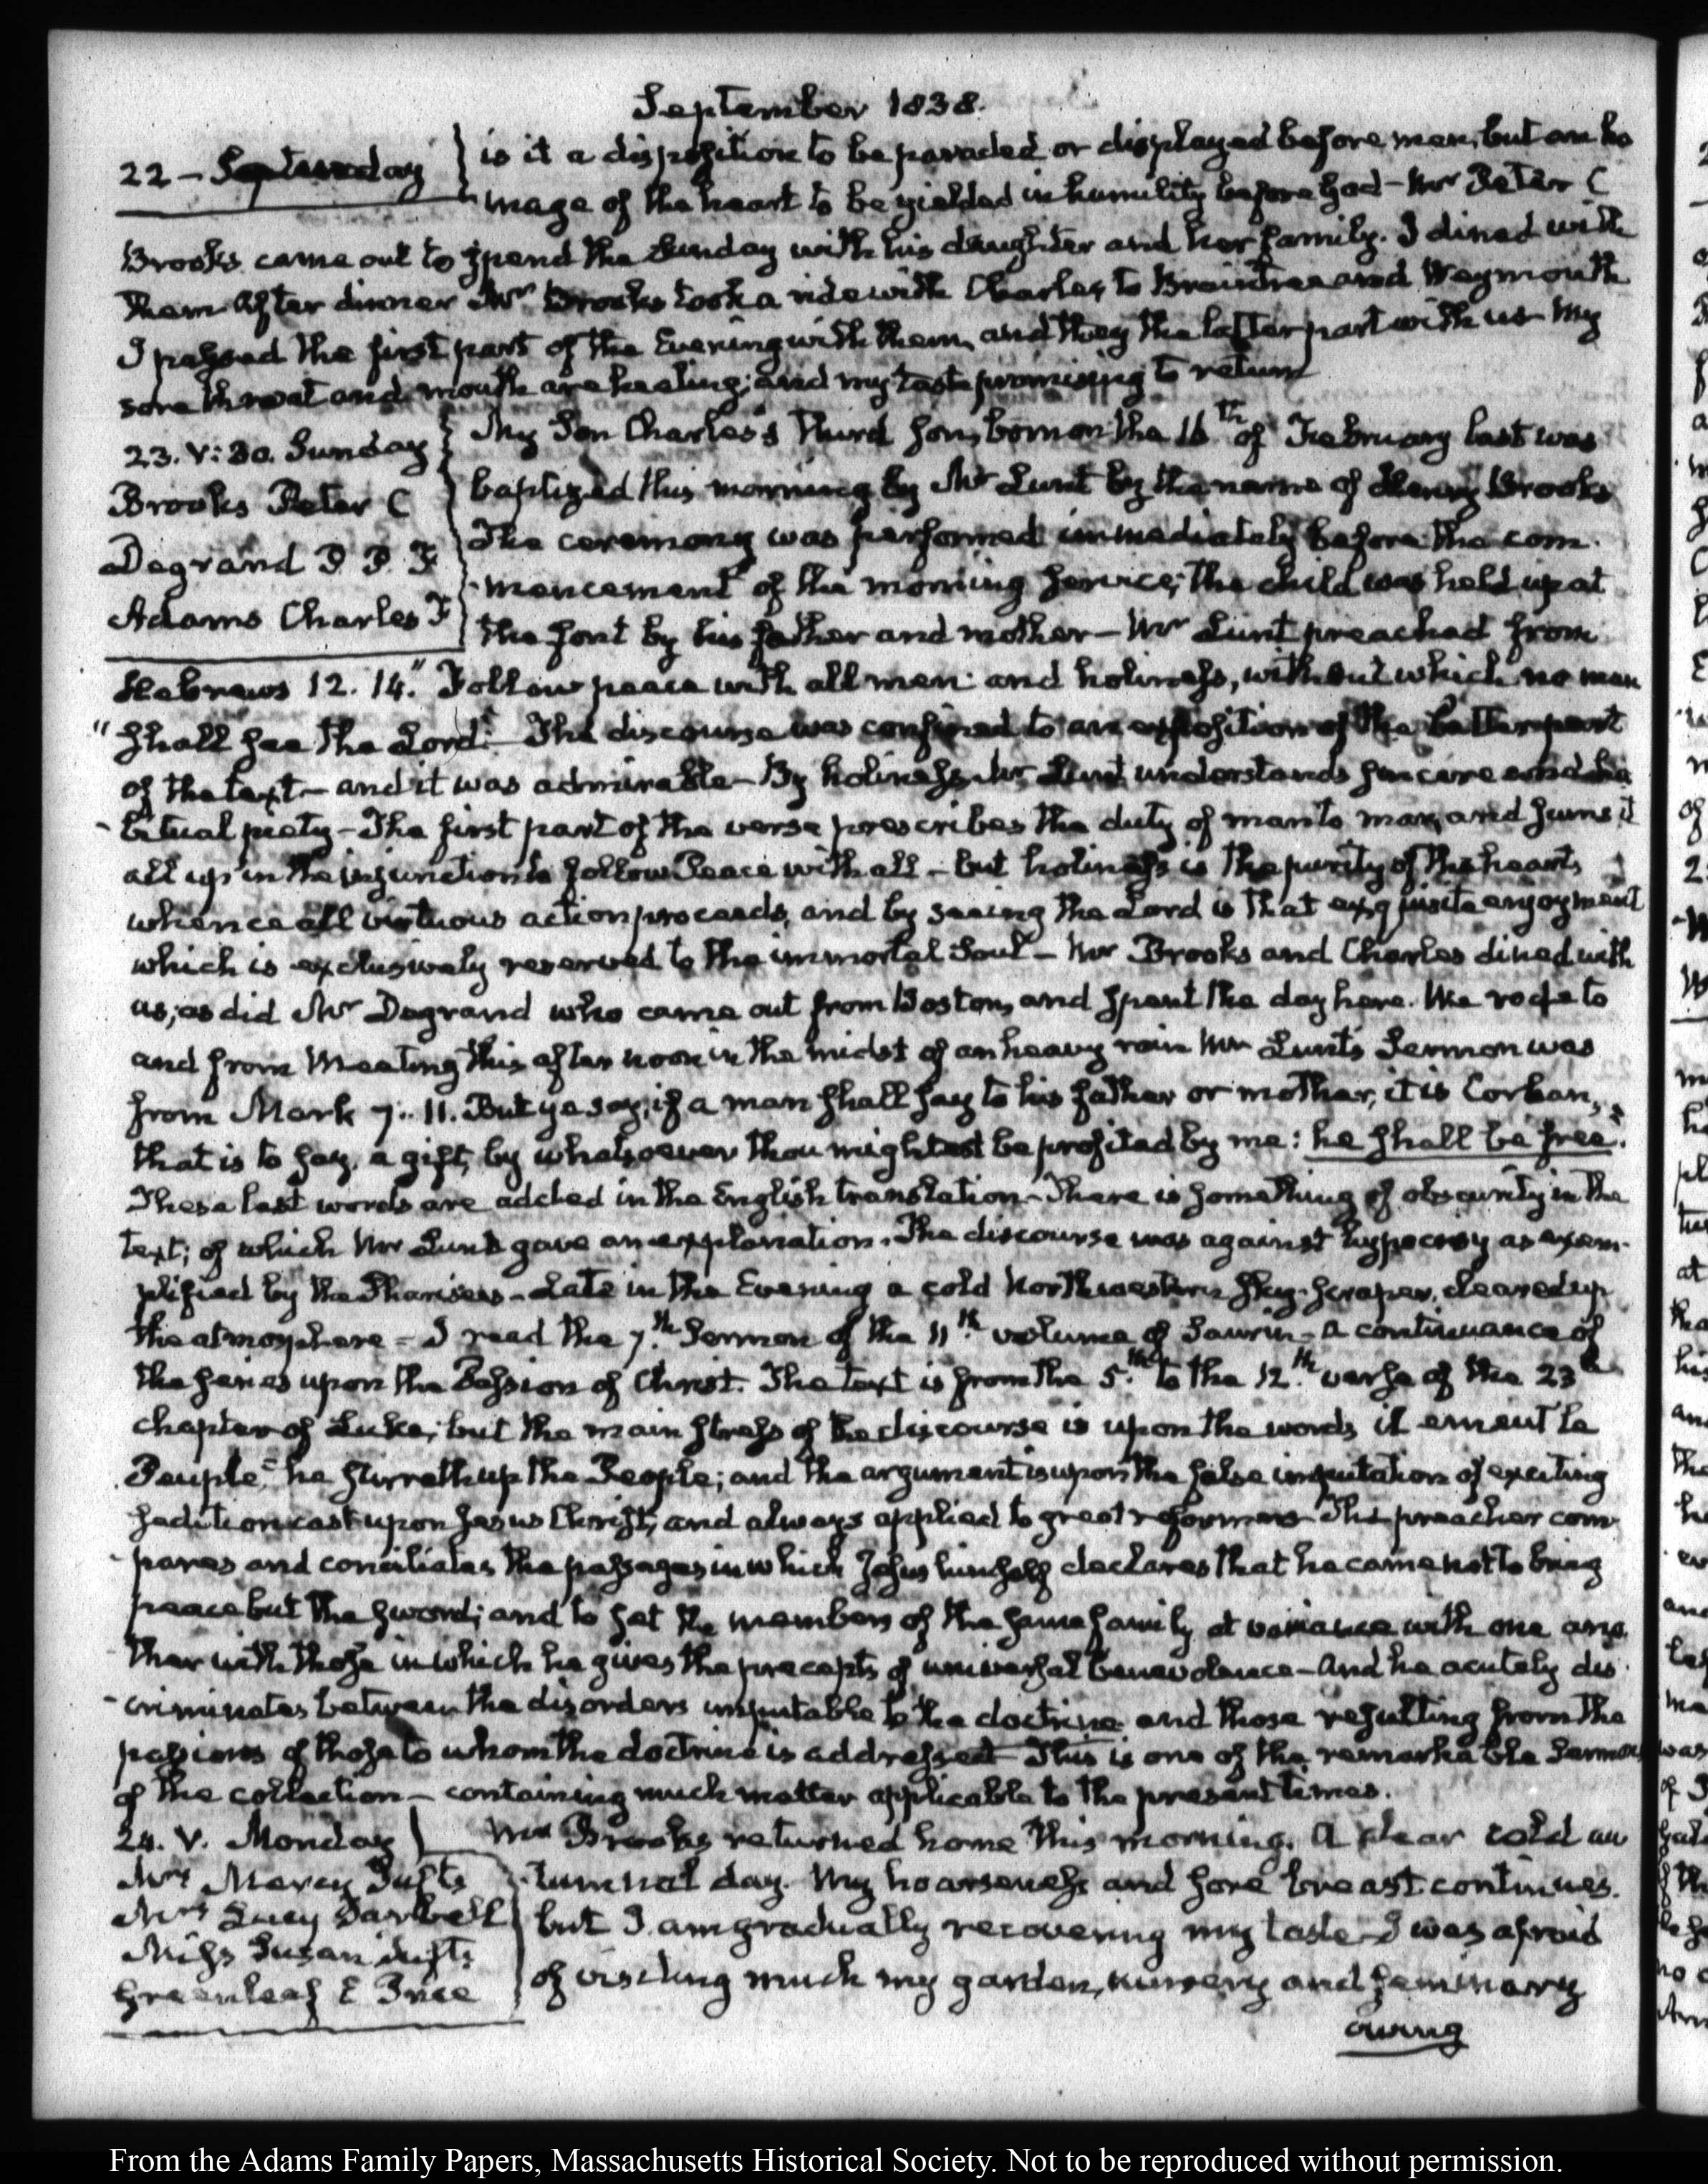 September 1838.
22 - Saturday
is it a disposition to be paraded or displayed before men, but an ho
mage of the heart to be yielded in humility before God - Mr Peter C
Brooks came out to spend the Sunday with his daughter and her family. I dined with
them After dinner Mr Brooks took a ride with Charles to Braintree and Weymouth
I passed the first part of the Evening with them, and they the latter part with us - My
sore throat and mouth are healing; and my taste promising to return
23. V:30. Sunday
Brooks Peter C
Degrand P. P. F
Adams Charles F
My Son Charles's Third Son, born on the 16th of February last was
baptized this morning by Mr Lunt by the name of Henry Brooks
The ceremony was performed immediately before the com-
-mencement of the morning service; the child was held up at
the font by his father and mother - Mr Lunt preached from
Hebrews 12. 14. "Follow peace with all men and holiness, without which no man
"shall see the Lord." The discourse was confined to an exposition of the latter part
of the text - and it was admirable - By holiness Mr Lunt understands sincere and ha
-bitual piety - The first part of the verse prescribes the duty of man to man, and sums it
all up in the injunction to follow Peace with all - but holiness is the purity of the heart,
whence all virtuous action proceeds, and by seeing the Lord is that exquisite enjoyment
which is exclusively reserved to the immortal Soul - Mr Brooks and Charles dined with
us, as did Mr Degrand who came out from Boston, and spent the day here. We rode to
and from Meeting this afternoon in the midst of an heavy rain Mr Lunt's Sermon was
from Mark 7. 11. But ye say, if a man shall say to his father or mother, it is Corban,
that is to say, a gift, by whatsoever thou mightest be profited by me: he shall be free."
These last words are added in the English translation - There is something of obscurity in the
text; of which Mr Lunt gave an explanation. The discourse was against hypocrisy as exem-
plified by the Pharisees - Late in the Evening a cold Northwestern sky-scraper, cleared up
the atmosphere - I read the 7th Sermon of the 11th volume of Saurin - a continuance of
the series upon the Passion of Christ. The text is from the 5th to the 12th verse of the 23d
chapter of Luke; but the main stress of the discourse is upon the words il emeut le
Peuple" he stirreth up the People; and the argument is upon the false imputation of exciting
sedition cast upon Jesus Christ, and always applied to great reformers The preacher com
-pares and conciliates the passages in which Jesus himself declares that he came not to bring
peace but the sword; and to set the members of the same family at variance with one ano
ther with those in which he gives the precepts of universal benevolence - And he acutely dis
-criminates between the disorders imputable to the doctrine and those resulting from the
passions of those to whom the doctrine is addressed This is one of the remarkable Sermons
of the collection - containing much matter applicable to the present times.
24. V. Monday
Mrs Mercy Tufts
Mrs Lucy Tarbell
Miss Susan Tufts
Greenleaf E Price
Mr Brooks returned home this morning. A clear cold au
-tumnal day. My hoarseness and sore breast continues.
but I am gradually recovering my taste - I was afraid
of visiting much my garden, nursery and seminary
owing
From the Adams Family Papers, Massachusetts Historical Society. Not to be reproduced without permission.